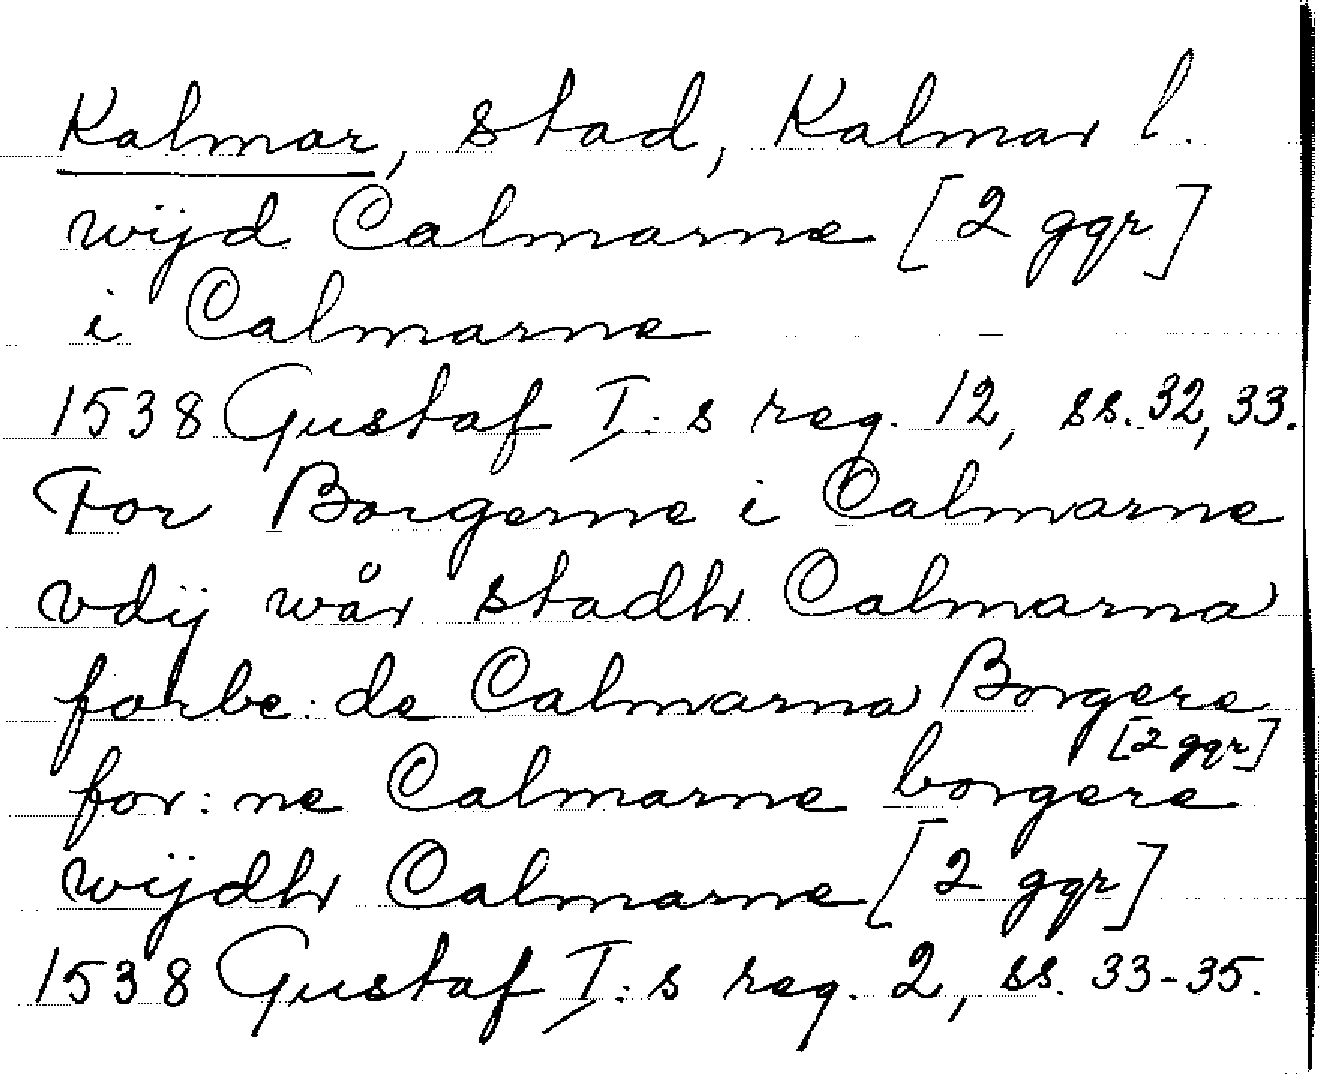 Kalmar, stad, Kalmar l.
wijd Calmarne [2 ggr]
i Calmarne
1538 Gustaf I:s reg. 12, ss. 32, 33.
For Borgerne i Calmarne
vdij wår stadh Calmarna
forbe:de Calmarna Borgere
[2 ggr]
for:ne Calmarne borgere
wijdh Calmarne [2 ggr]
1538 Gustaf I:s reg. 2, ss. 33-35.